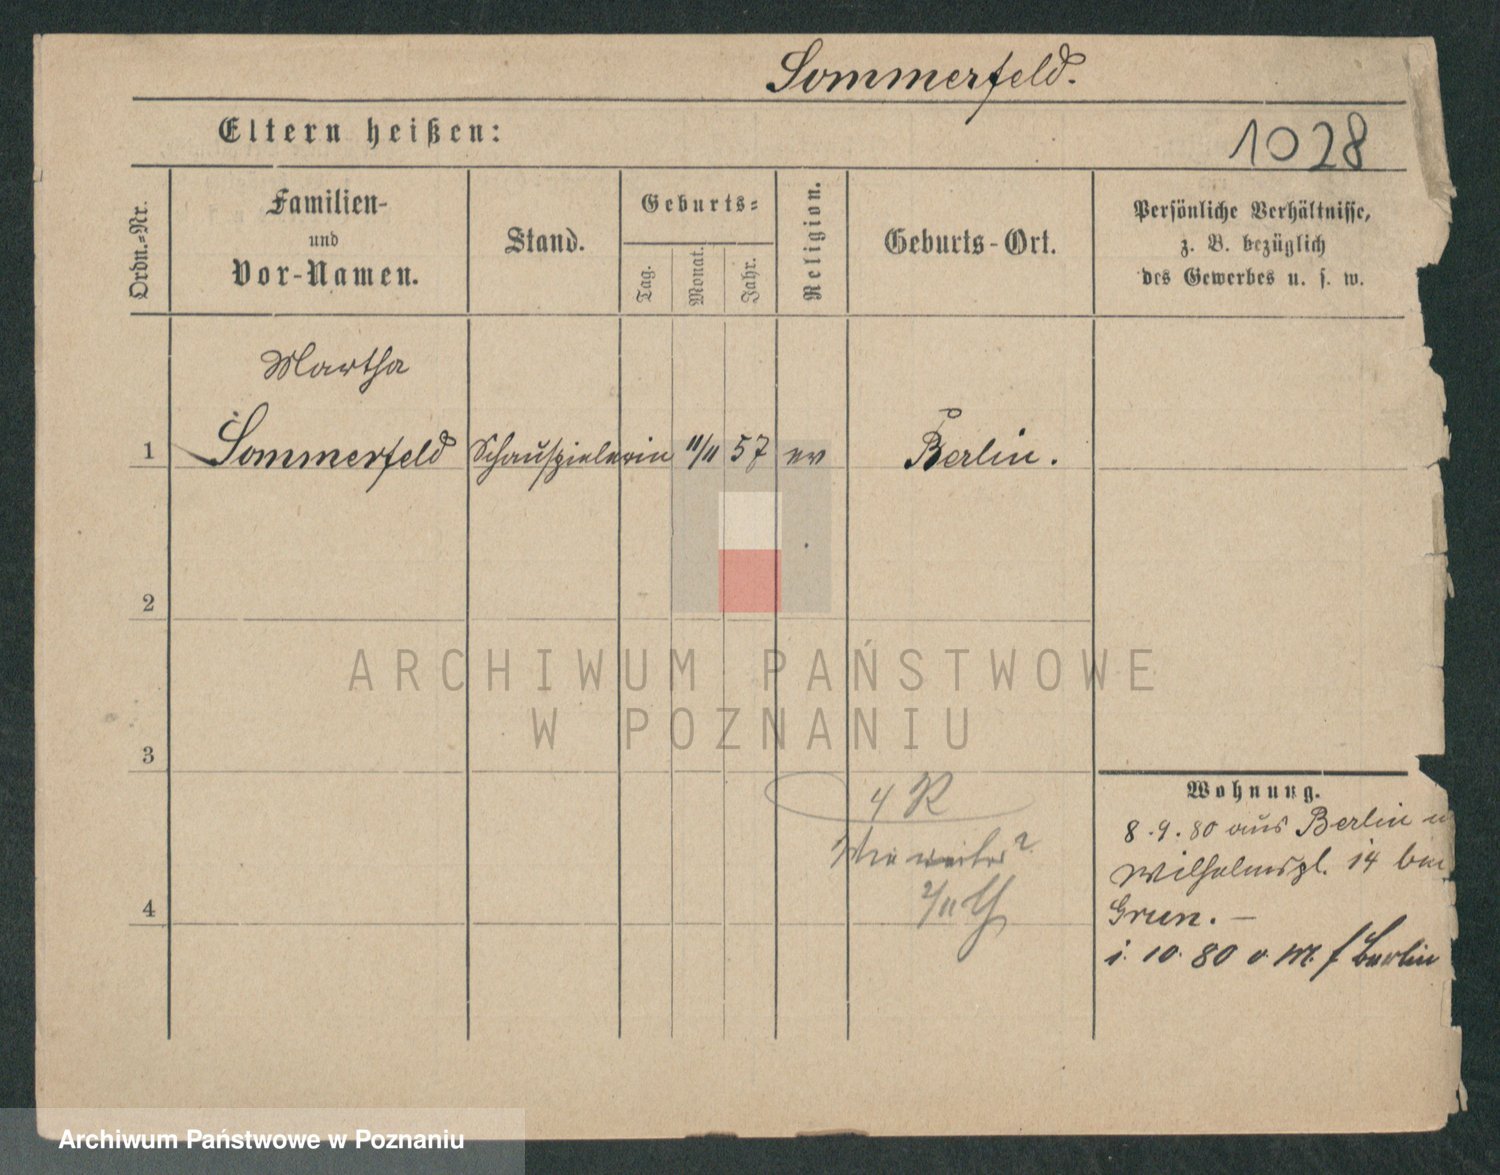 Sommerfeld.
Eltern heißen:
1028
Ordn.-Nr.
Familien-
und
Vor-Namen.
Stand.
Geburts-
Tag.
Monat.
Jahr.
Religion.
Geburts-Ort.
Persönliche Verhältnisse,
z. B. bezüglich
des Gewerbes u. s. w.
Martha
1 Sommerfeld Schauspielerin 11/11 57 ev Berlin.
2
ARCHIWUM PAŃSTWOWE
W POZNANIU
3
4 R
Wie weiter?
2/11
4
Wohnung.
8.9.80 aus Berlin n
Wilhelmspl. 14 bei
Grun. —
i. 10. 80 o. M. f Berlin
Archiwum Państwowe w Poznaniu